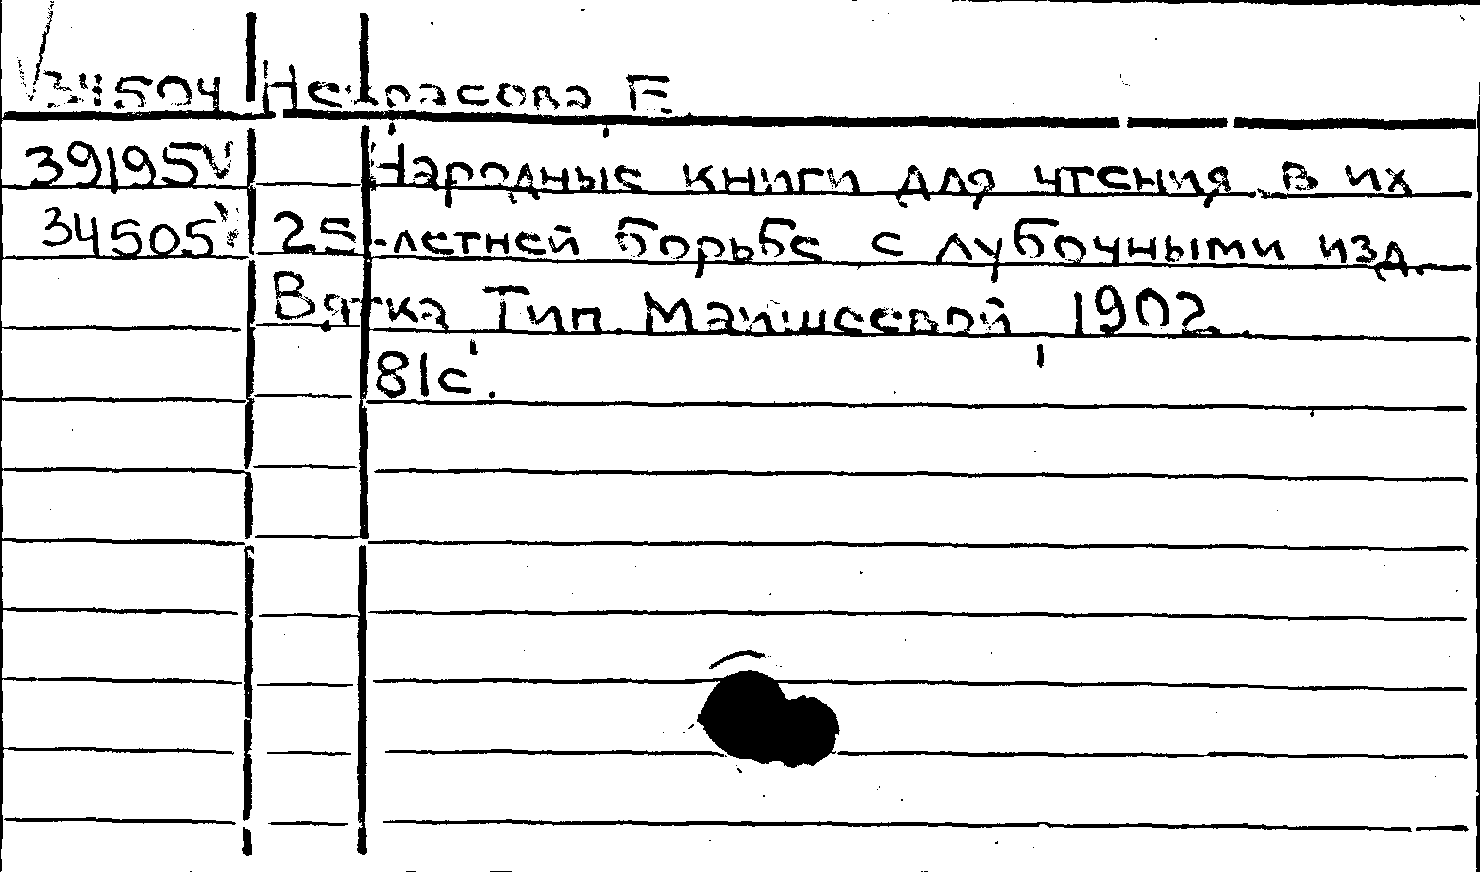 34504 Некрасова Е.
39195 Народные книги для чтения в их
34505 25-летней борьбе с лубочными изд.
Вятка Тип. Маишеевой 1902.
81с.